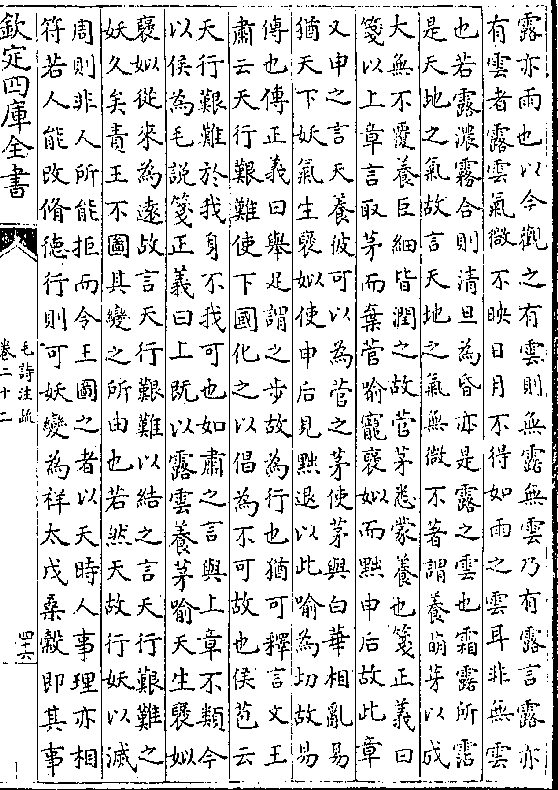 露亦雨也以今觀之有雲則無露無雲乃有露言露亦
有雲者露雲氣微不映日月不得如雨之雲耳非無雲
也若露濃霧合則清旦為昏亦是露之雲也霜露所霑
是天地之氣故言天地之氣無微不著謂養萌芽以成
大無不覆養臣細皆潤之故菅茅悉蒙養也箋正義曰
箋以上章言取茅而棄菅喻寵褒姒而黜申后故此章
又申之言天養彼可以為菅之茅使茅與白華相亂易
猶天下妖氣生褒姒使申后見黜退以此喻為切故易
傳也傳正義曰舉足謂之步故為行也猶可釋言文王
肅云天行艱難使下國化之以倡為不可故也侯苞云
天行艱難於我身不我可也如肅之言與上章不類今
以侯為毛說箋正義曰上既以露雲養茅喻天生褒姒
褒姒從來為遠故言天行艱難以結之言天行艱難之
妖久矣責王不圖其變之所由也若然天故行妖以滅
周則非人所能拒而令王圖之者以天時人事理亦相
符若人能改脩德行則可妖變為祥太戊桑穀即其事
欽定四庫全書
毛詩注疏
卷二十二
四十六